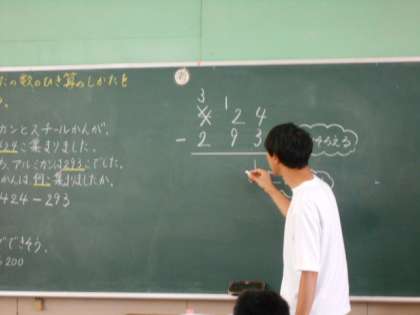 たの数のひき算のしかたを
う。
カンとスチールかんが、
424こ集まりました。
ち、アルミカンは293こでした。
かんは何こ集まりましたか。
424-293
できそう。
200
3 1
4 2 4
- 2 9 3
1